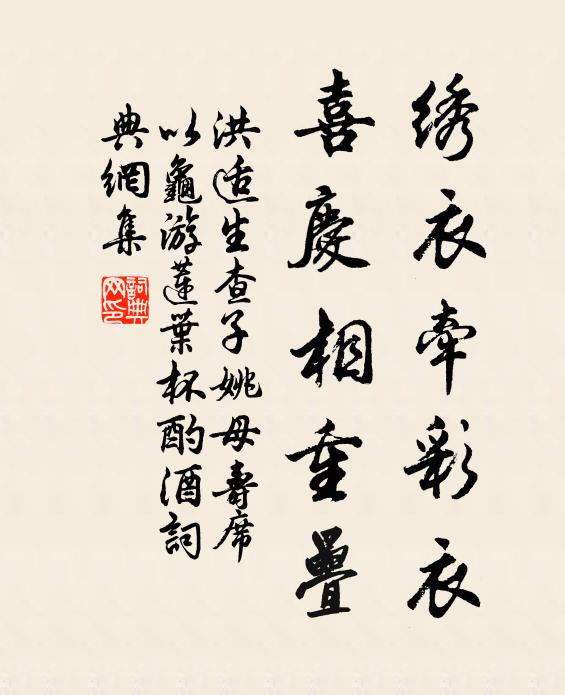 绣衣牵彩衣
喜慶相重疊
洪适生查子姚母壽席
以龜游蓮葉杯酌酒詞
典網集
詞典
网印